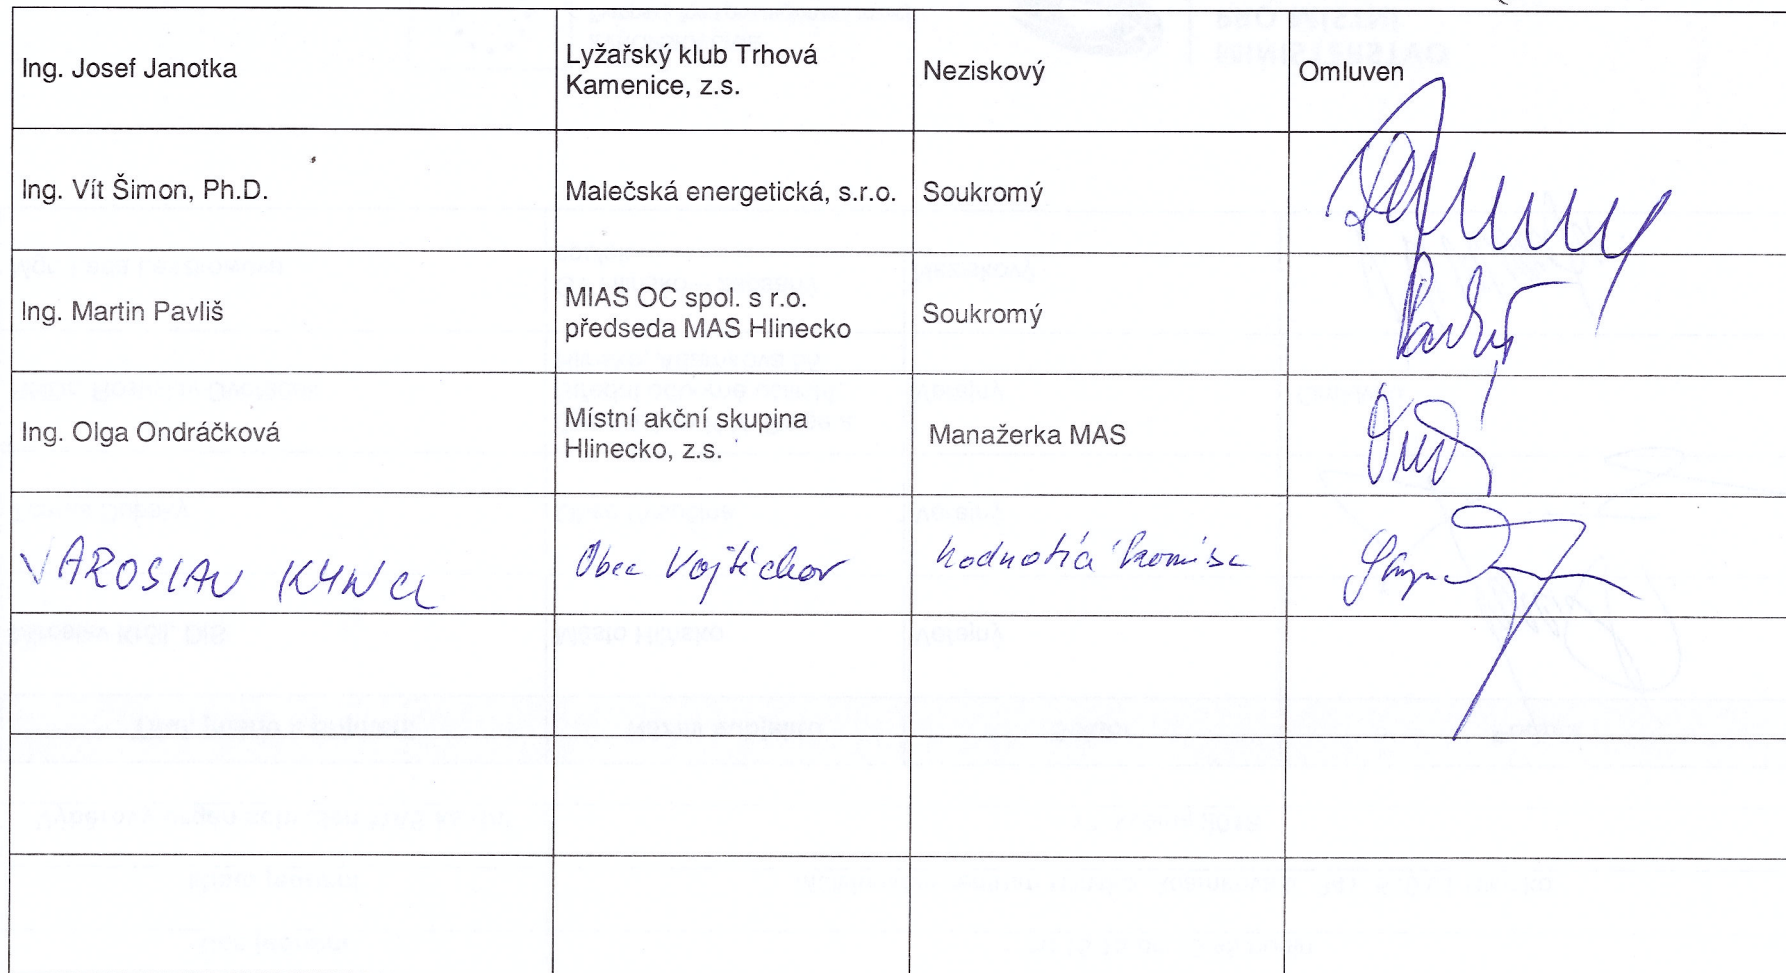 Ing. Josef Janotka
Lyžařský klub Trhová
Kamenice, z.s.
Neziskový
Omluven
Ing. Vít Šimon, Ph.D.
Malečská energetická, s.r.o.
Soukromý
Ing. Martin Pavliš
MIAS OC spol. s r.o.
předseda MAS Hlinecko
Soukromý
Ing. Olga Ondráčková
Místní akční skupina
Hlinecko, z.s.
Manažerka MAS
JAROSLAV KYNCL
Obec Vojtěchov
hodnotící komise